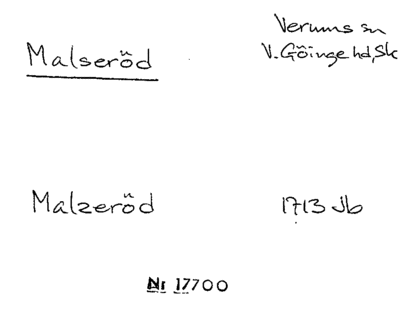 Verums sn
Malseröd V. Göinge hd, Sk
Malzeröd 1713 Jb
Nr 17700